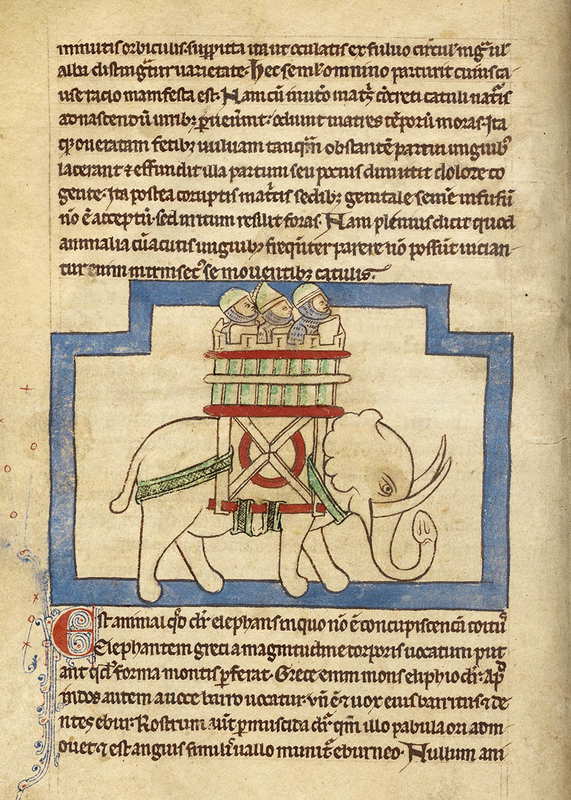 minutis orbiculis. suppicta ita ut oculatis ex fuluo circul' nig̃ ul'
alba distinguit̃ur uarietate. Hec semel omnino parturit cuius ca
use racio manifesta est. Nam cũ in utõ mat̃s c̃creti catuli nat̃is
ad nascendũ uirib; p̱uenĩnt. odiunt matres t̃porũ moras. Ita
q̃ oneratam fetib; uuluam tanqm̃ obstantẽ partui unguib;
lacerant ⁊ effundit illa partum seu pocius dimittit dolore co
gente. Ita postea coruptis mat̃is sedib; genitale semẽ infusũ
nõ ẽ acceptũ. sed irritum resilit foras. Nam plinius dicit quod
animalia cũ acutis unguib; freq̃nter parere nõ possũt uician
tur enim int̃insec' se mouentib; catulis.
Est animal q̃d dr̃ elephans in quo nõ ẽ concupiscencia coitus
Elephantem greci a magnitudine corporis uocatum put
ant qd' forma montis p̱ferat. Grece enim mons eliphio dr̃. Ap̃
indos autem a uoce barro uocatur. vñ ⁊ uox eius barritus. ⁊ de
ntes ebur. Rostrum aũt p̱muscida dr̃. qm̃ illo pabula ori adm
ouet. ⁊ est angui similis uallo munit̃ eburneo. Nullum ani